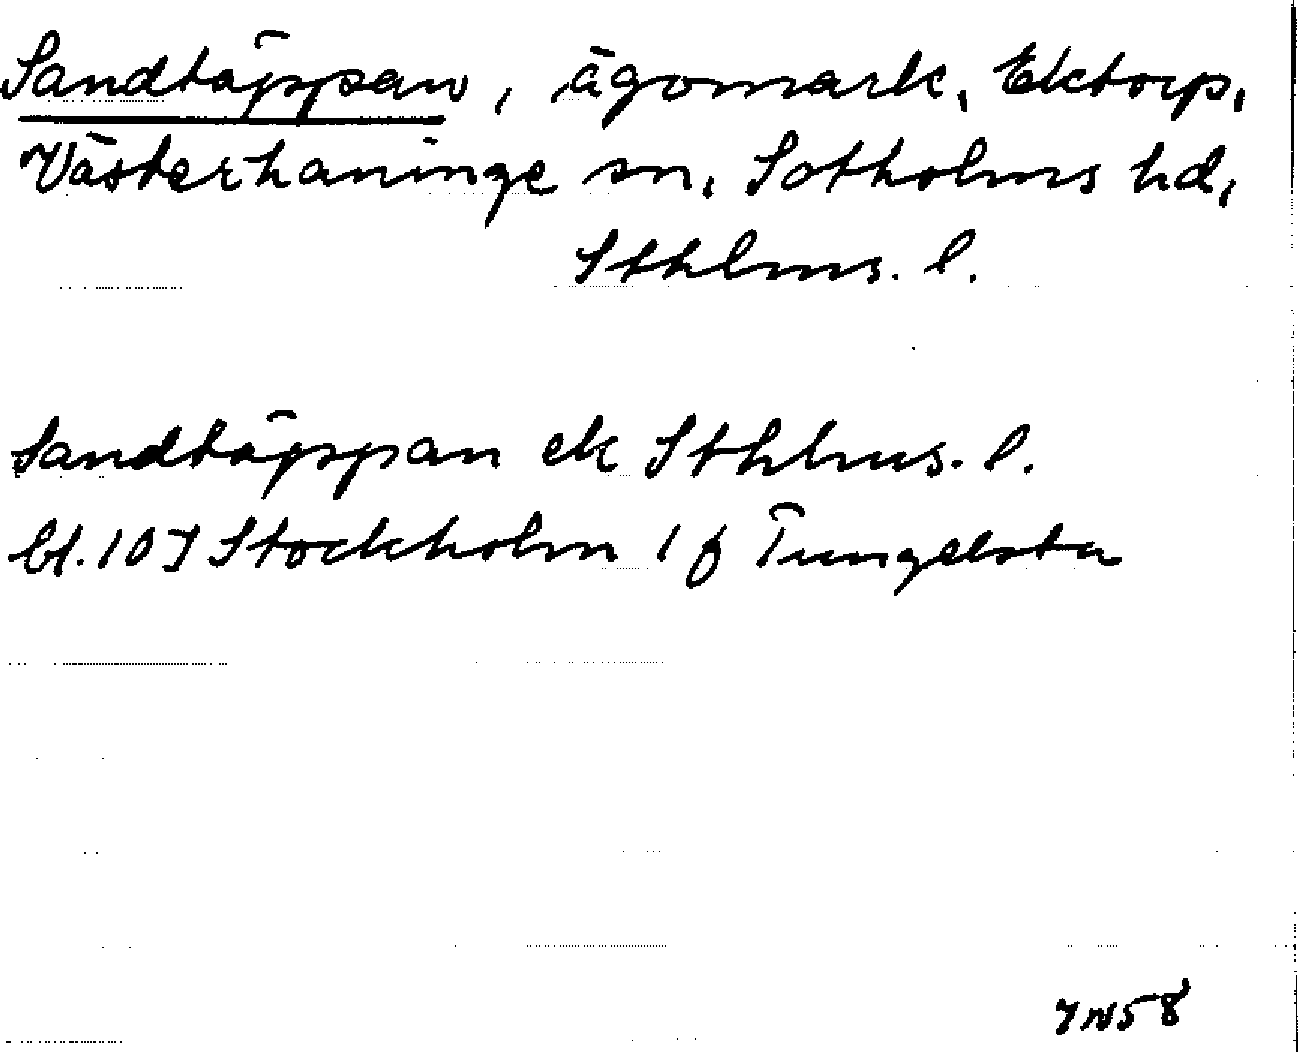 Sandtäppan, ägomark, Ektorp,
Västerhaninge sn, Sotholms hd,
Sthlms. l.
Sandtäppan ek Sthlms. l.
bl. 10 I Stockholm 1 f Tungelsta
IN58